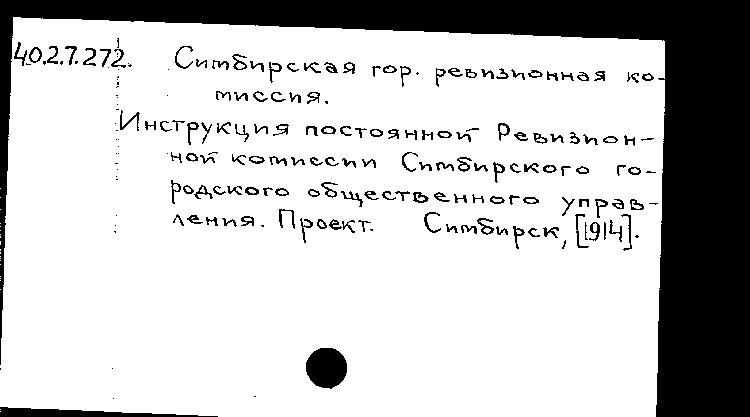 40.2.7.272. Симбирская гор. ревизионная ко-
миссия.
Инструкция постоянной Ревизион-
ной комиссии Симбирского го-
родского общественного управ-
ления. Проект. Симбирск, [1914].